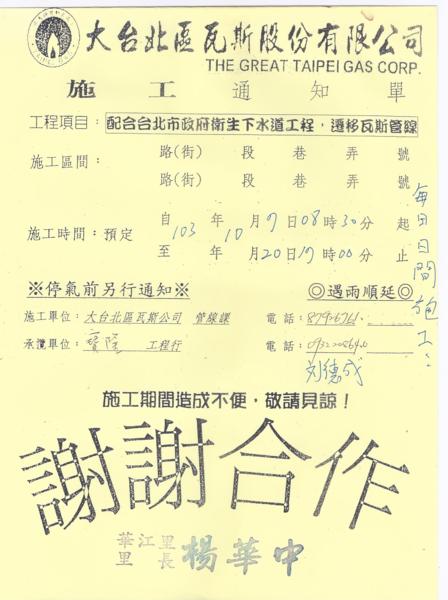 大台北區瓦斯股份有限公司
THE GREAT TAIPEI GAS CORP.
施工通知單
工程項目：配合台北市政府衛生下水道工程，遷移瓦斯管線
施工區間： 路(街) 段 巷 弄 號
路(街) 段 巷 弄 號
施工時間：預定 自 103 年 10 月 7 日 08 時 30 分 起
至 年 月 20 日 17 時 00 分 止
每日日間施工
※停氣前另行通知※ ◎遇雨順延◎
施工單位：大台北區瓦斯公司 管線課 電話：
承攬單位： 工程行 電話：
刘德成
施工期間造成不便，敬請見諒！
謝謝合作
華江里
里長 楊華中